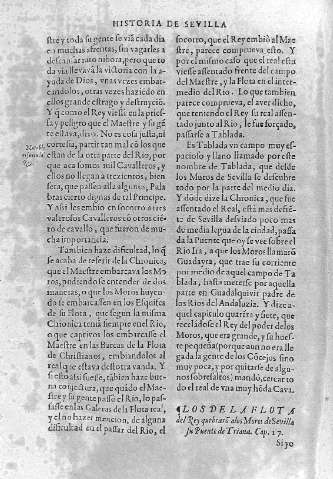 HISTORIA DE SEVILLA
stre y toda su gente se viã cada dia
en muchas afrentas, sin vagarles a
descansar rato ni hora, pero que to
da via llevavã la victoria con la a-
yuda de Dios, unas vezes embar
candolos, otras vezes haziedo en
ellos grande estrago y destruyciõ.
Y q como el Rey viesse la priessa
y peligro que el Maestre y su gẽ
te estava, dixo. No es cosa justa, ni
cortesia, partir tan mal cõ los que
estan de la otra parte del Rio, por
que aca somos mil Cavalleros, y
ellos no llegan a trezientos, bien
sera, que passen alla algunos. Pala
bras cierto dignas de tal Principe.
Y assi les embio en socorro a tres
valerosos Cavalleros cõ otros ciẽ-
to de cavallo, que fueron de mu-
cha importancia.
Tambien haze dificultad, lo q
se acaba de referir de la Chronica,
que el Maestre embarcava los Mo
ros, pudiendose entender de dos
maneras, o que los Moros huyen
do se embarcassen en los Esquifes
de su flota, que segun la misma
Chronica tenia siempre en el Rio,
o que captivos los embarcasse el
Maestre en las Barcas de la Flota
de Christianos, embiandolos al
real que estava dessotra vanda. Y
si esto assi fuesse, tãbien haze buena
conjetura, que quãdo el Maes-
tre y su gente passò el Rio, lo pas-
sasse en las Galeras de la Flota real,
y el no hazer mencion, de alguna
dificultad en el passar del Rio, el
socorro, que el Rey embiò al Mae
stre, parece comprueva esto. Y
por el mismo caso que el real esta
viesse assentado frente del campo
del Maestre, y la Flota en el inter-
medio del Rio. Lo que tambien
parece comprueva, el aver dicho,
que teniendo el Rey su real assen-
tado junto al Rio, le fue forçado,
passarse a Tablada.
Es Tablada un campo muy es-
pacioso y llano llamado por este
nombre de Tablada, que desde
los Muros de Sevilla se descubre
todo por la parte del medio dia.
Y donde dize la Chronica, que fue
assentado el Real, està mas desvie
de Sevilla desviado poco mas
de media legua de la ciudad, passa
da la Puente que oy se vee sobre el
Rio Ira, a que los Moros llamarõ
Guadayra, que trae su corriente
por medio de aquel campo de Ta
blada, hasta meterse por aquella
parte en Guadalquivir padre de
los Rios del Andaluzia. Y dize a-
quel capitulo quatro y siete, que
recelãdose el Rey del poder de los
Moros, que era grande, y su hues-
te pequeña (porque aun no era lle
gada la gente de los Cõcejos sino
muy poca, y por quitarse de algu-
nos sobresaltos) mandò, cercar to
do el real de una muy hõda Cava.
¶LOS DE LA FLOTA
del Rey quebrarõ a los Moros de Sevilla
su Puente de Triana. Cap. 17.
Si yo